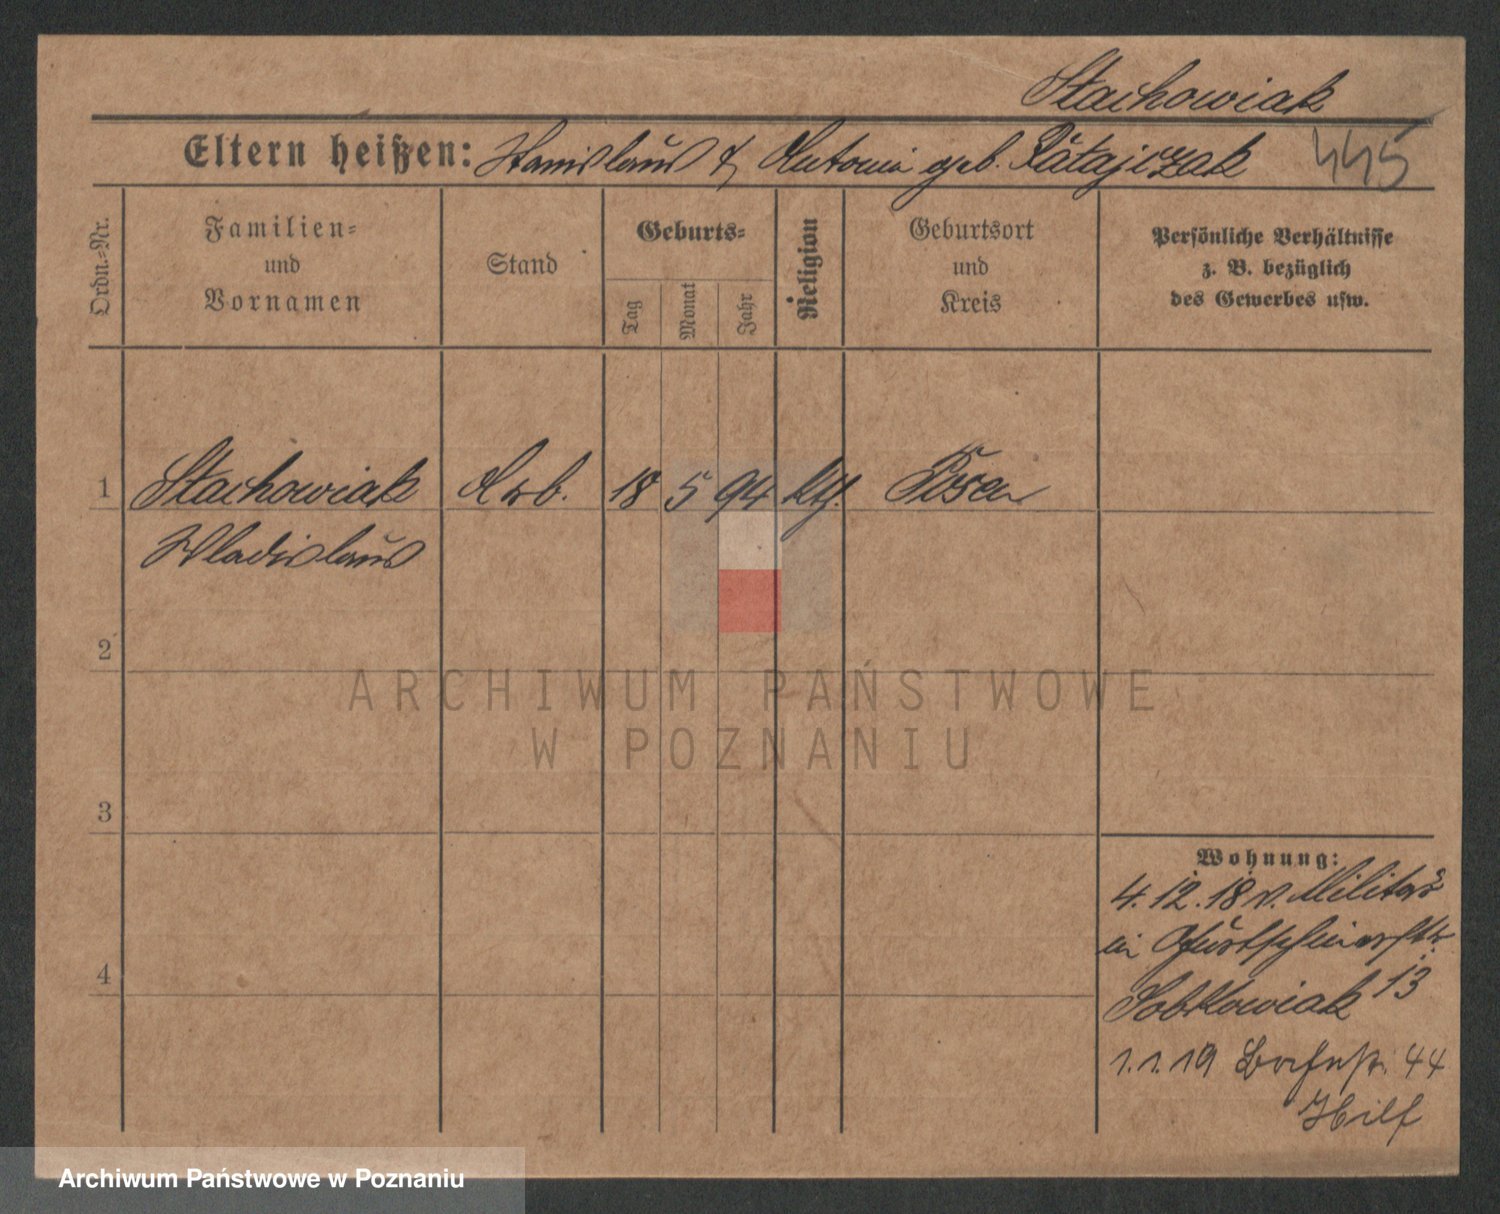 Stachowiak
Eltern heißen: Stanislaus & Antonie geb. Ratajczak 445
Ordn.-Nr.
Familien- und Vornamen
Stand
Geburts-
Tag
Monat
Jahr
Religion
Geburtsort und Kreis
Persönliche Verhältnisse
z. B. bezüglich
des Gewerbes usw.
1 Stachowiak Arb. 18 5 94 kth. Posen
Wladislaus
2
3
4
Wohnung:
4.12.18 v. Militär
in
Sobkowiak 13
1.1.19 44
Hilf
ARCHIWUM PAŃSTWOWE
W POZNANIU
Archiwum Państwowe w Poznaniu